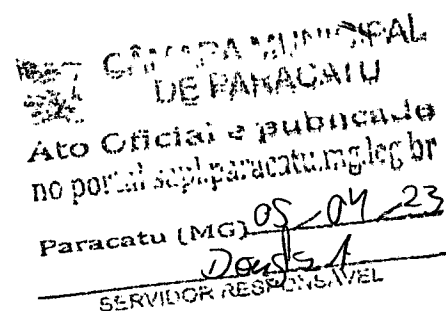 CÂMARA MUNICIPAL
DE PARACATU
Ato Oficial e publicado
no portal sapl.paracatu.mg.leg.br
Paracatu (MG) 05/04/23
SERVIDOR RESPONSÁVEL